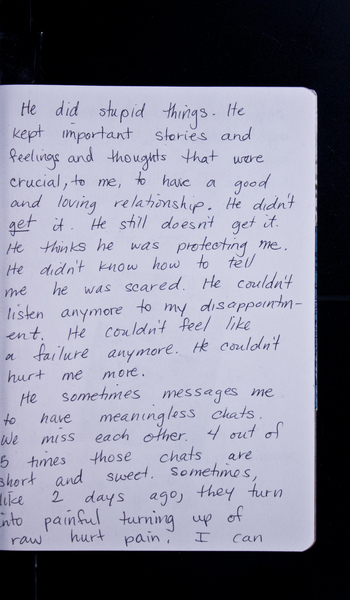 He did stupid things. He
kept important stories and
feelings and thoughts that were
crucial, to me, to have a good
and loving relationship. He didn't
get it. He still doesn't get it.
He thinks he was protecting me.
He didn't know how to tell
me he was scared. He couldn't
listen anymore to my disappointm-
ent. He couldn't feel like
a failure anymore. He couldn't
hurt me more.
He sometimes messages me
to have meaningless chats.
We miss each other. 4 out of
5 times those chats are
short and sweet. Sometimes,
like 2 days ago, they turn
into painful turning up of
raw hurt pain. I can